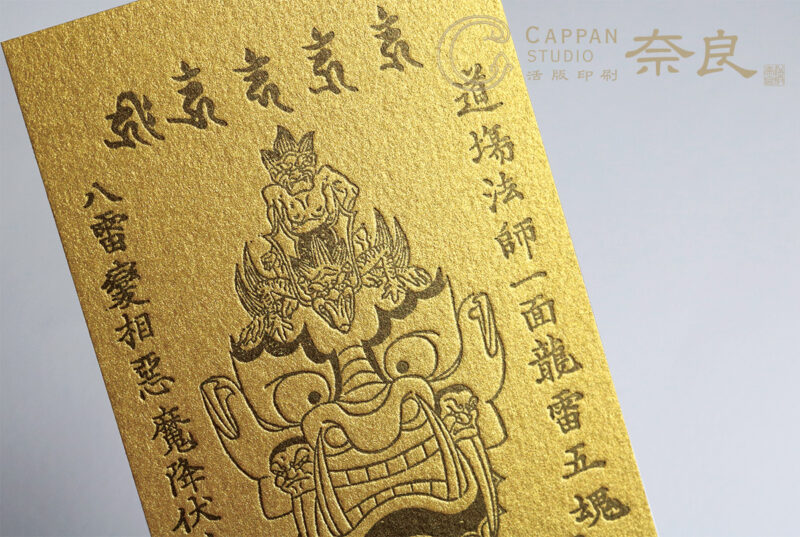 CAPPAN
STUDIO
活版印刷
奈良
道塲法師一面龍雷五塊
八雷變相惡魔降伏